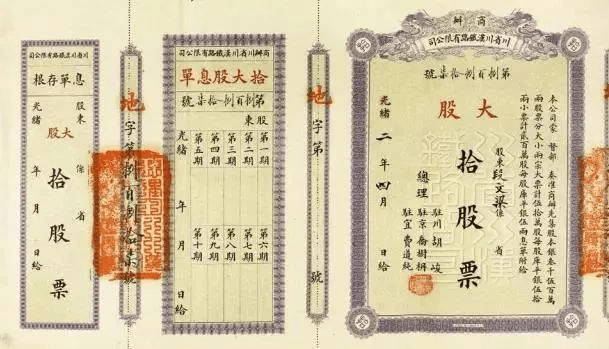 商辦
川省川漢鐵路有限公司
第捌百捌拾柒號
大股
本公司蒙 督部 奏准商辦先集股本銀叁千五百萬
兩股票分大小兩宗大票計伍拾萬股每股庫平銀伍拾
兩小票計貳百萬股每股庫平銀伍兩息票附給
股東段文梁係 省
拾股票
總理
駐川 胡峻
駐京 喬樹枏
駐宜 費道純
光緒 二年四月 日給
地字第 號
商辦川省川漢鐵路有限公司
拾大股息單
第捌百捌拾柒號
股東
第一期 第六期
第二期 第七期
第三期 第八期
第四期 第九期
第五期 第十期
光緒 年 月 日給
地字第捌百捌拾柒號
商辦川省川漢鐵路有限公司
息單存根
股東 係 省
大股
拾股票
光緒 年 月 日給